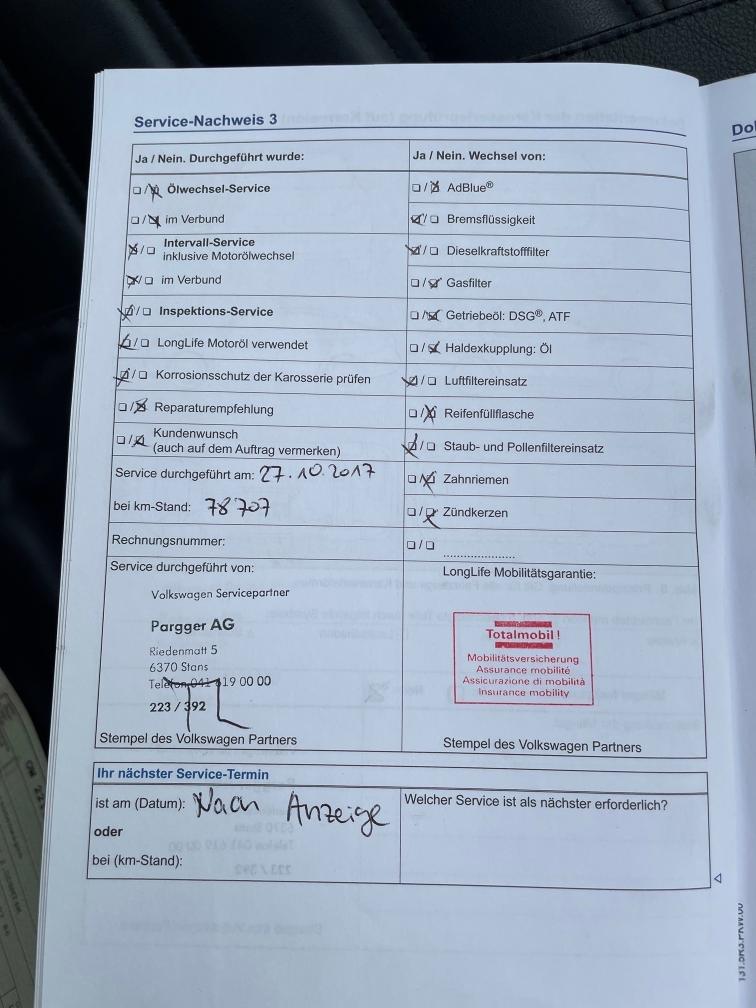 Service-Nachweis 3
Ja / Nein. Durchgeführt wurde:
☐/☒ Ölwechsel-Service
☐/☒ im Verbund
☒/☐ Intervall-Service
inklusive Motorölwechsel
☒/☐ im Verbund
☒/☐ Inspektions-Service
☒/☐ LongLife Motoröl verwendet
☒/☐ Korrosionsschutz der Karosserie prüfen
☐/☒ Reparaturempfehlung
☐/☒ Kundenwunsch
(auch auf dem Auftrag vermerken)
Service durchgeführt am: 27.10.2017
bei km-Stand: 78707
Rechnungsnummer:
Service durchgeführt von:
Volkswagen Servicepartner
Pargger AG
Riedenmatt 5
6370 Stans
Telefon 041 619 00 00
223 / 392
Stempel des Volkswagen Partners
Ja / Nein. Wechsel von:
☐/☒ AdBlue®
☒/☐ Bremsflüssigkeit
☒/☐ Dieselkraftstofffilter
☐/☒ Gasfilter
☐/☒ Getriebeöl: DSG®, ATF
☐/☒ Haldexkupplung: Öl
☒/☐ Luftfiltereinsatz
☐/☒ Reifenfüllflasche
☒/☐ Staub- und Pollenfiltereinsatz
☐/☒ Zahnriemen
☐/☒ Zündkerzen
☐/☐ .....................
LongLife Mobilitätsgarantie:
Totalmobil!
Mobilitätsversicherung
Assurance mobilité
Assicurazione di mobilità
Insurance mobility
Stempel des Volkswagen Partners
Ihr nächster Service-Termin
ist am (Datum): Nach Anzeige
oder
bei (km-Stand):
Welcher Service ist als nächster erforderlich?